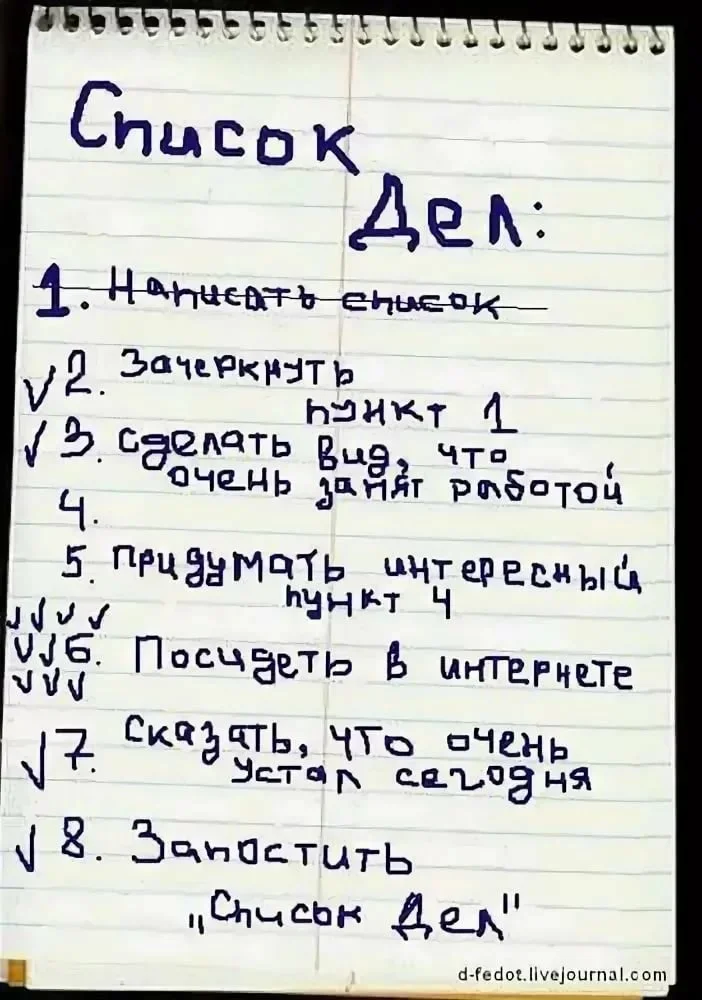 Список
Дел:
1. Написать список
✓ 2. Зачеркнуть
пункт 1
✓ 3. Сделать вид, что
очень занят работой
4.
5. Придумать интересный
пункт 4
✓✓✓✓
✓✓6. Посидеть в интернете
✓✓✓
✓7. Сказать, что очень
устал сегодня
✓ 8. Запостить
„Список Дел"
d-fedot.livejournal.com